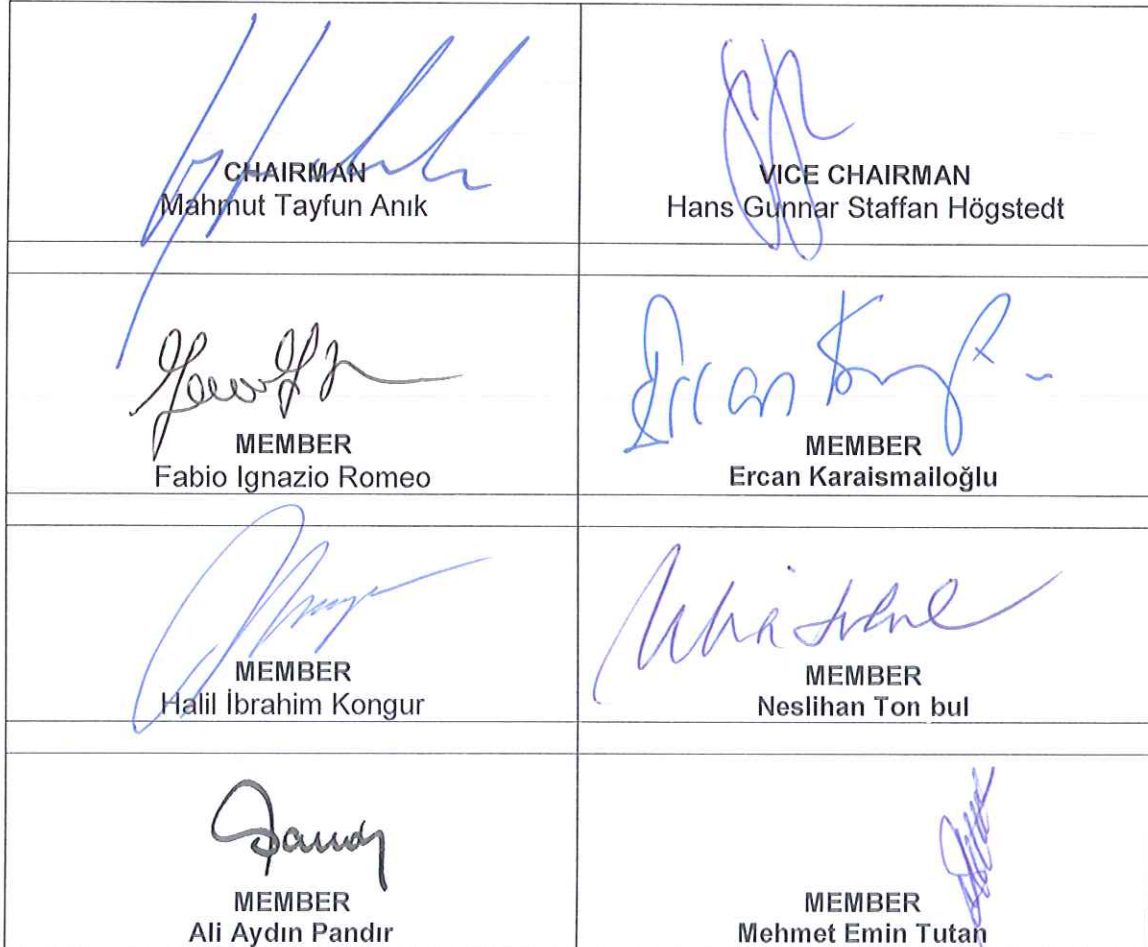 CHAIRMAN
Mahmut Tayfun Anık
VICE CHAIRMAN
Hans Gunnar Staffan Högstedt
MEMBER
Fabio Ignazio Romeo
Ercan
MEMBER
Ercan Karaismailoğlu
MEMBER
Halil İbrahim Kongur
MEMBER
Neslihan Ton bul
MEMBER
Ali Aydın Pandır
MEMBER
Mehmet Emin Tutan